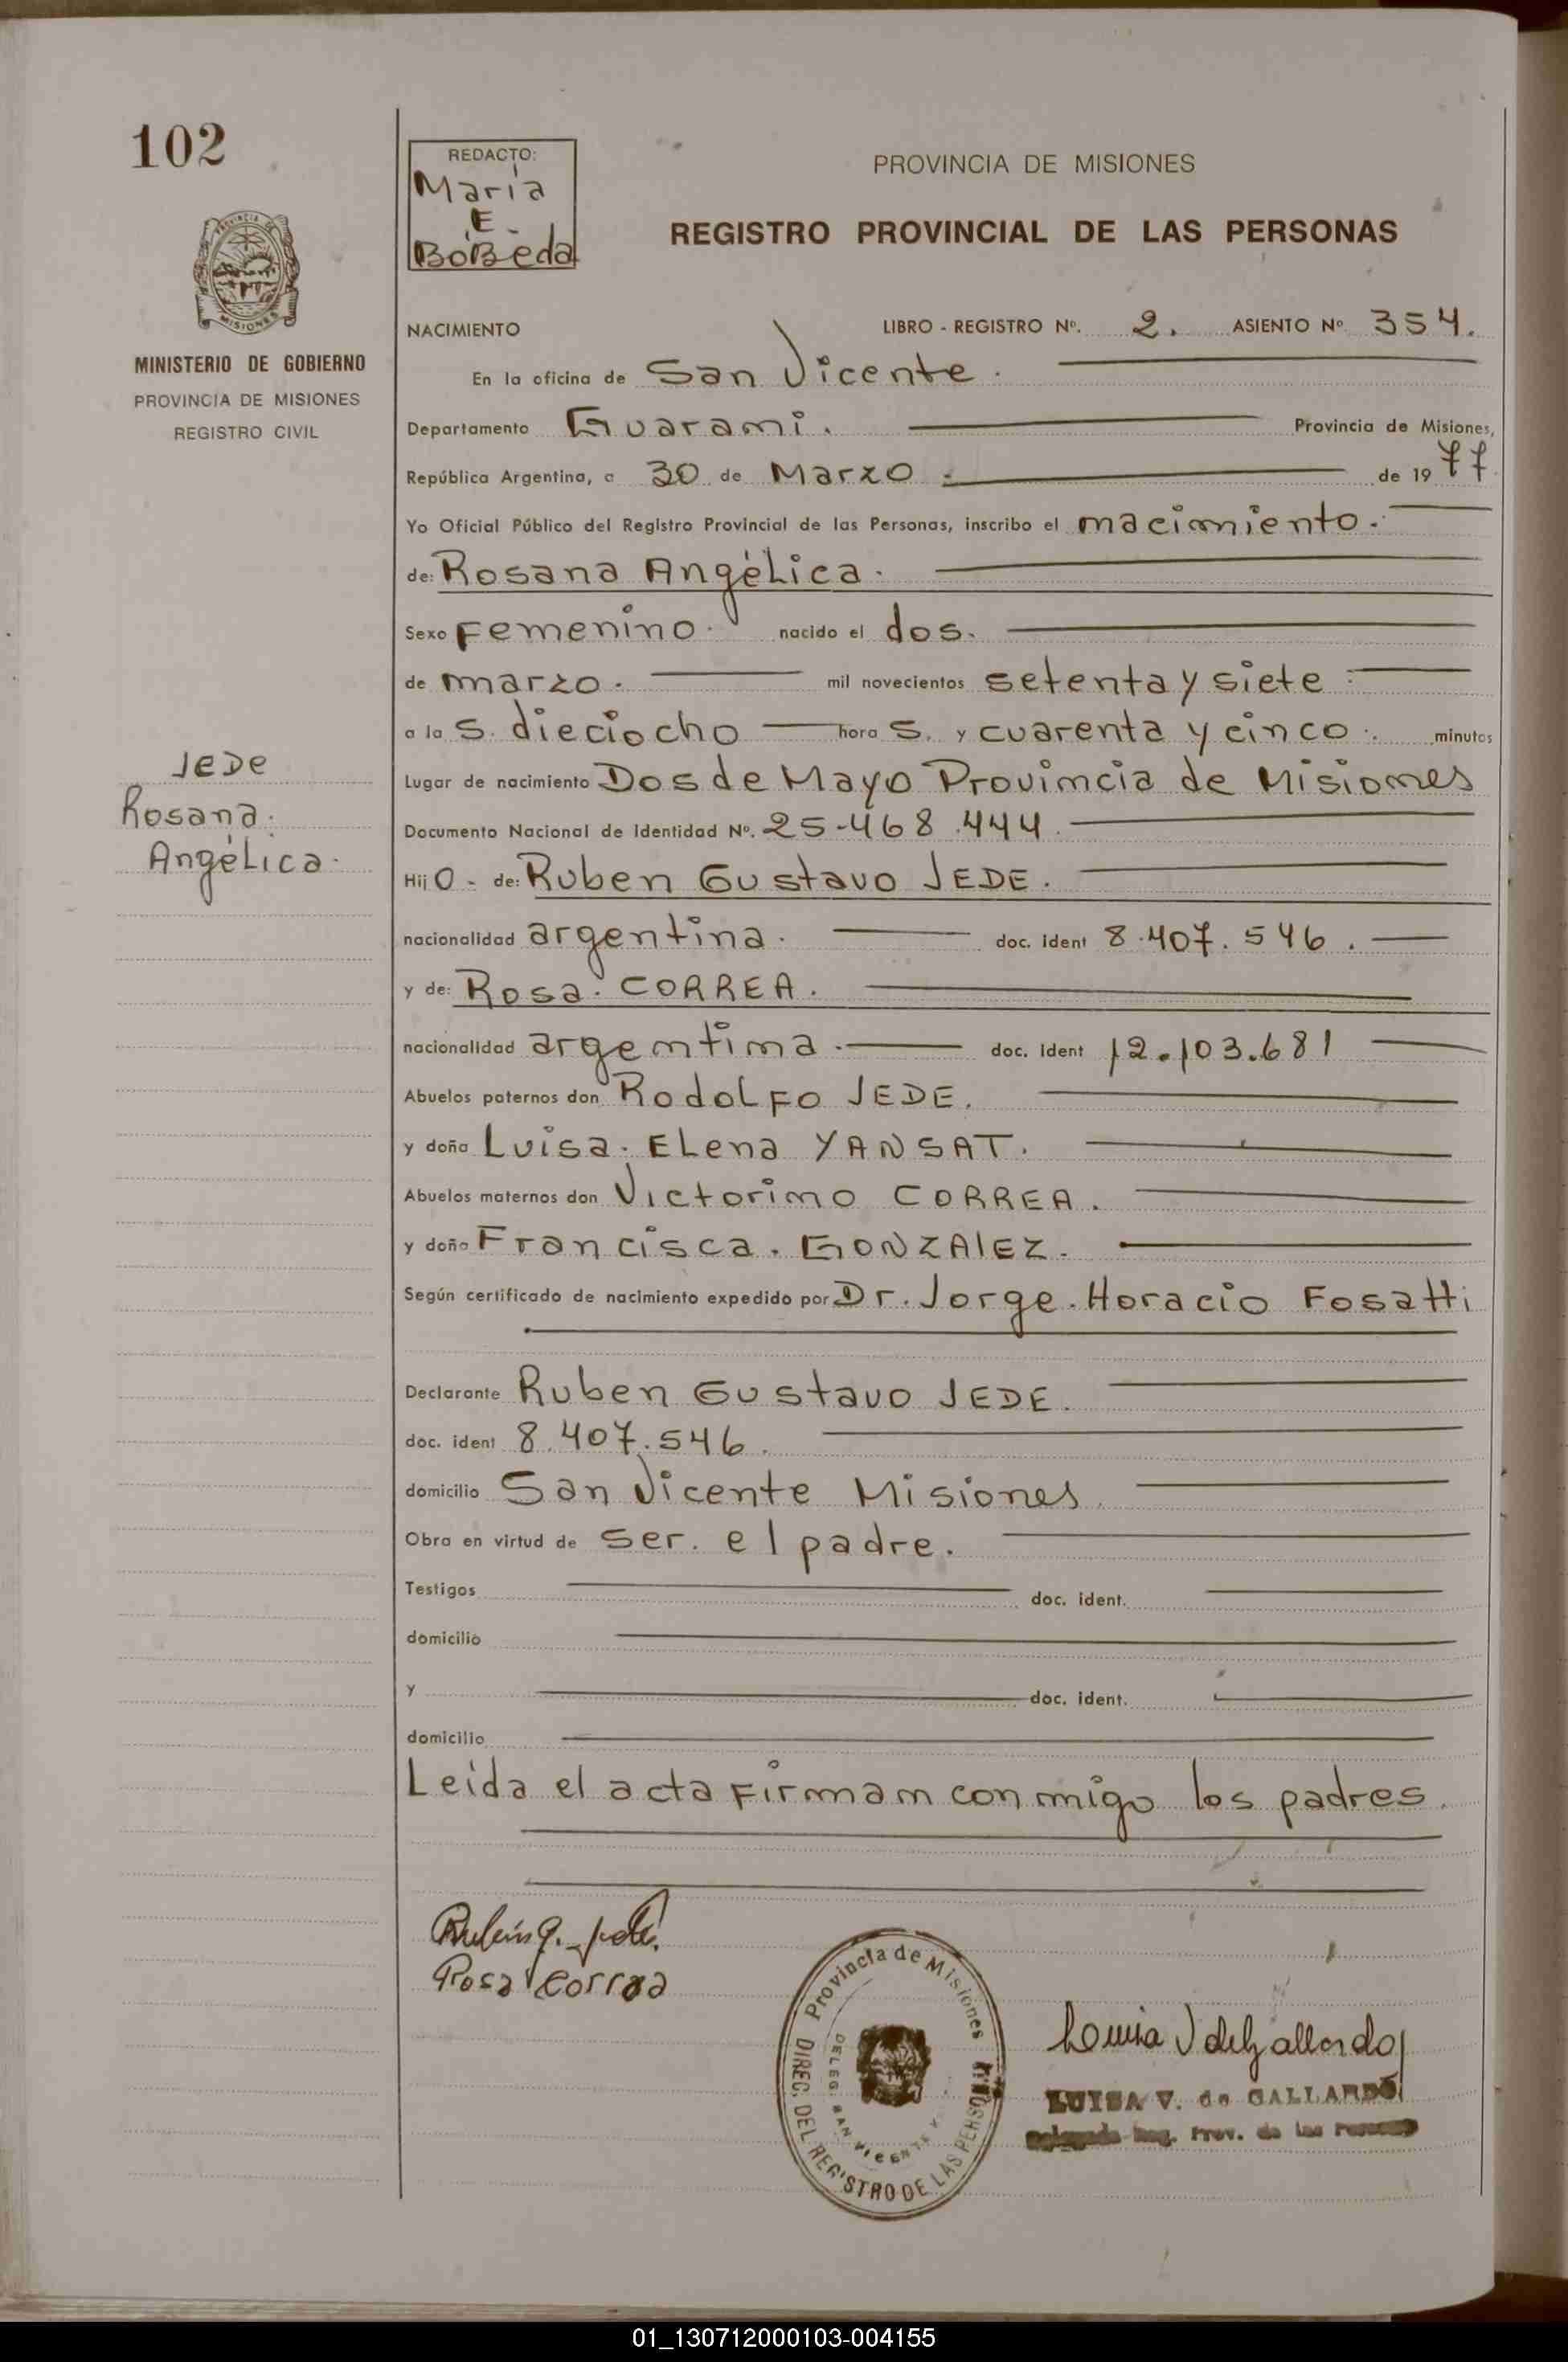 102
REDACTO:
Maria
E.
BoBeda
PROVINCIA DE MISIONES
REGISTRO PROVINCIAL DE LAS PERSONAS
MISIONES
MINISTERIO DE GOBIERNO
PROVINCIA DE MISIONES
REGISTRO CIVIL
NACIMIENTO LIBRO - REGISTRO Nº. 2. ASIENTO Nº 354.
En la oficina de San Vicente.
Departamento Guarami. Provincia de Misiones,
República Argentina, a 30 de Marzo de 1977
Yo Oficial Público del Registro Provincial de las Personas, inscribo el macimiento.
de: Rosana Angélica.
Sexo Femenino. nacido el dos.
de marzo. mil novecientos setenta y siete
a las. dieciocho horas. y cuarenta y cinco. minutos
Lugar de nacimiento Dos de Mayo Provimcia de Misiomes
Documento Nacional de Identidad Nº. 25.468.444.
Hijo - de: Ruben Gustavo JEDE.
nacionalidad argentina. doc. ident 8.407.546.
y de: Rosa. CORREA.
nacionalidad argemtima. doc. ident 12.103.681
Abuelos paternos don Rodolfo JEDE.
y doña Luisa. Elena YANSAT.
Abuelos maternos don Victorimo CORREA.
y doña Francisca. GONZAlEZ.
Según certificado de nacimiento expedido por Dr. Jorge. Horacio Fosatti
Declarante Ruben Gustavo JEDE.
doc. ident 8.407.546.
domicilio San Vicente Misiones.
Obra en virtud de ser. el padre.
Testigos doc. ident.
domicilio
y doc. ident.
domicilio
Leida el acta firmam conmigo los padres.
JEDE
Rosana.
Angélica.
Rosa Correa
Provincia de Misiones
DIREC. DEL REGISTRO DE LAS PERSONAS
DELEG. SAN VICENTE
LUISA V. de GALLARDO
Delegada Reg. Prov. de las Personas
01_130712000103-004155